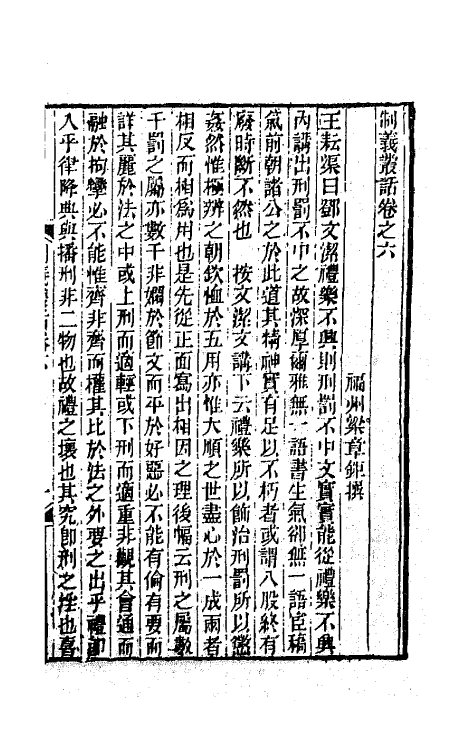 制義叢話卷之六
福州梁章鉅撰
王耘渠曰鄧文潔禮樂不興則刑罰不中文實實能從禮樂不興
內講出刑罰不中之故深厚爾雅無一語書生氣卻無一語宦稿
氣前朝諸公之於此道其精神實有足以不朽者或謂八股終有
廢時斷不然也　按文潔文講下云禮樂所以飾治刑罰所以懲
姦然惟極辨之朝欽恤於五用亦惟大順之世盡心於一成兩者
相反而相為用也是先從正面寫出相因之理後幅云刑之屬數
千罰之屬亦數千非嫻於節文而平於好惡必不能有倫有要而
詳其麗於法之中或上刑而適輕或下刑而適重非觀其會通而
融於拘攣必不能惟齊非齊而權其比於法之外要之出乎禮卽
入乎律降典與播刑非二物也故禮之壞也其究卽刑之淫也喜